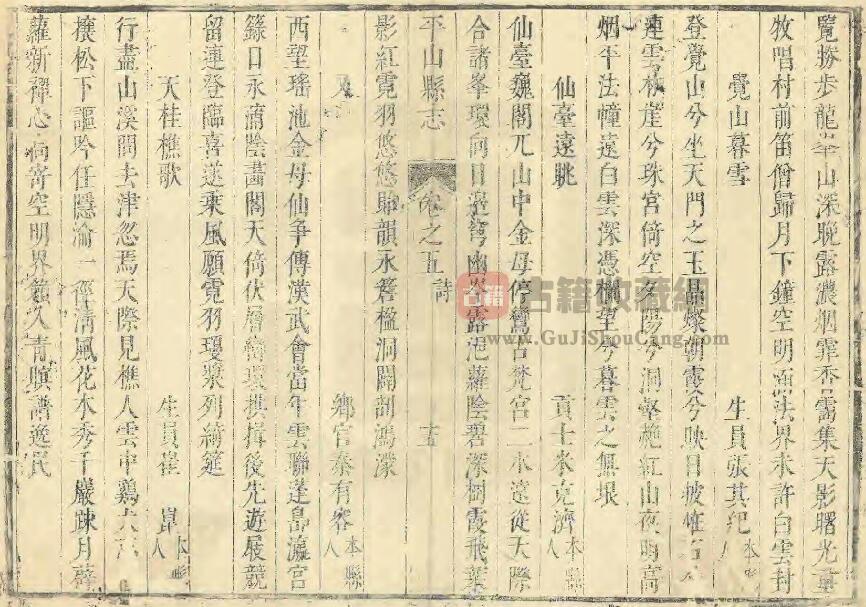 覽勝步龍山深晚露濃烟霏香靄集天影曙光
牧唱村前笛僧歸月下鐘空明法界未許白雲封
覺山暮雪 生員張其紀本縣人
登覺山兮坐天門之玉晶燦朝霞兮映日披惟
連雲兮珠宮倚空夕陽兮洞壑艷紅山夜明高
烟平法幢遠白雲深憑欄望兮暮雲之無垠
仙臺遠眺 貢士米克濟本縣人
仙臺巍閣兀山中金母停鸞古梵宮二水遠從天際
合諸峯環向日邊穹幽露浥蘿陰碧深樹霞飛葉
平山縣志 卷之五 詩 十五
影紅霓羽悠悠賸韻永簪楹洞闢剖鴻濛
又 鄉官秦有容本縣人
西望瑤池金母仙爭傳漢武會當年雲聯蓬島瀛宮
籙日永蒲陰畵閣天倚伏層巒環拱揖後先遊展競
留連登臨喜遂乘風願霓羽瓊漿列綺筵
天桂樵歌 生員崔 本縣人
行盡山溪問去津忽焉天際見樵人雲中鷄犬
松下謳吟任隱淪一徑清風花木秀千巖踈月薜
蘿新禪心寄空明界錯久青譜逸民
古籍
古籍收藏網
www.GuJiShouCang.com